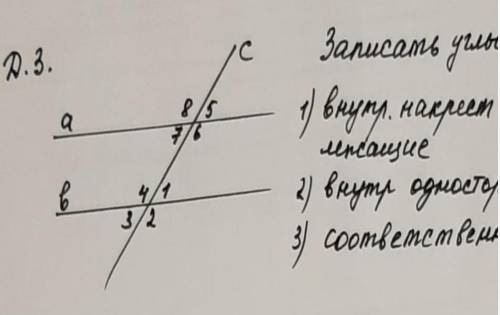 Д.З.
Записать углы
1) внутр. накрест
лежащие
2) внутр одностор
3) соответственн
c
a
8 5
7 6
в
4 1
3 2